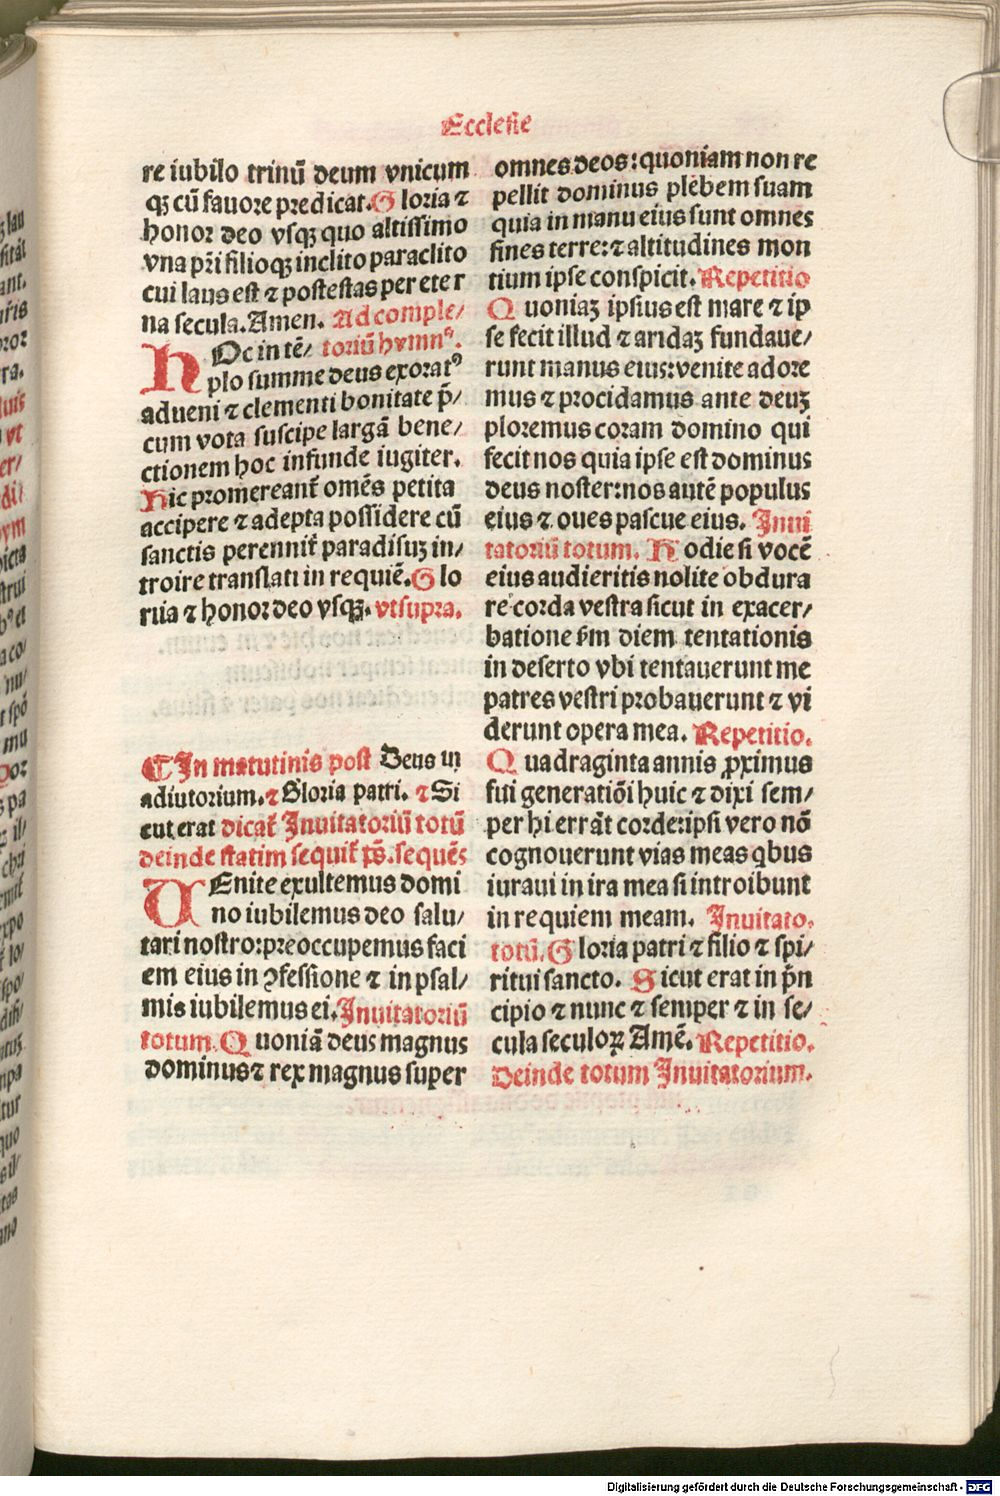 Ecclesie
re iubilo trinū deum vnicum
qꝫ cū fauore predicat. Gloria ⁊
honor deo vsqꝫ quo altissimo
vna pr̄i filioqꝫ inclito paraclito
cui laus est ⁊ postestas per eter
na secula. Amen. Ad comple/
HOc in tē/ toriū hymnꝰ.
plo summe deus exoratꝰ
adueni ⁊ clementi bonitate p̄/
cum vota suscipe largā bene/
ctionem hoc infunde iugiter.
Hic promereant᷑ omēs petita
accipere ⁊ adepta possidere cū
sanctis perennit᷑ paradisuꝫ in/
troire translati in requiē. Glo
riia ⁊ honor deo vsqꝫ. vt supra.
¶ In matutinis post Deus in
adiutorium. ⁊ Gloria patri. ⁊ Si
cut erat dicat᷑ Inuitatoriū totū
deinde statim sequit᷑ ps̄. sequēs
VEnite exultemus domi
no iubilemus deo salu/
tari nostro: preoccupemus faci
em eius in ꝯfessione ⁊ in psal/
mis iubilemus ei. Inuitatoriū
totum. Quoniā deus magnus
dominus ⁊ rex magnus super
omnes deos: quoniam non re
pellit dominus plebem suam
quia in manu eius sunt omnes
fines terre: ⁊ altitudines mon
tium ipse conspicit. Repetitio
Quoniaꝫ ipsius est mare ⁊ ip
se fecit illud ⁊ aridaꝫ fundaue/
runt manus eius: venite adore
mus ⁊ procidamus ante deuꝫ
ploremus coram domino qui
fecit nos quia ipse est dominus
deus noster: nos autē populus
eius ⁊ oues pascue eius. Inui
tatoriū totum. Hodie si vocē
eius audieritis nolite obdura
re corda vestra sicut in exacer/
batione s̄m diem tentationis
in deserto vbi tentauerunt me
patres vestri probauerunt ⁊ vi
derunt opera mea. Repetitio.
Quadraginta annis ꝓximus
fui generatiōi huic ⁊ dixi sem/
per hi errāt corde: ipsi vero nō
cognouerunt vias meas qͥbus
iuraui in ira mea si introibunt
in requiem meam. Inuitato.
totū. Gloria patri ⁊ filio ⁊ spi/
ritui sancto. Sicut erat in pͥn
cipio ⁊ nunc ⁊ semper ⁊ in se/
cula seculoꝝ Amē. Repetitio.
Deinde totum Inuitatorium.
Digitalisierung gefördert durch die Deutsche Forschungsgemeinschaft - DFG